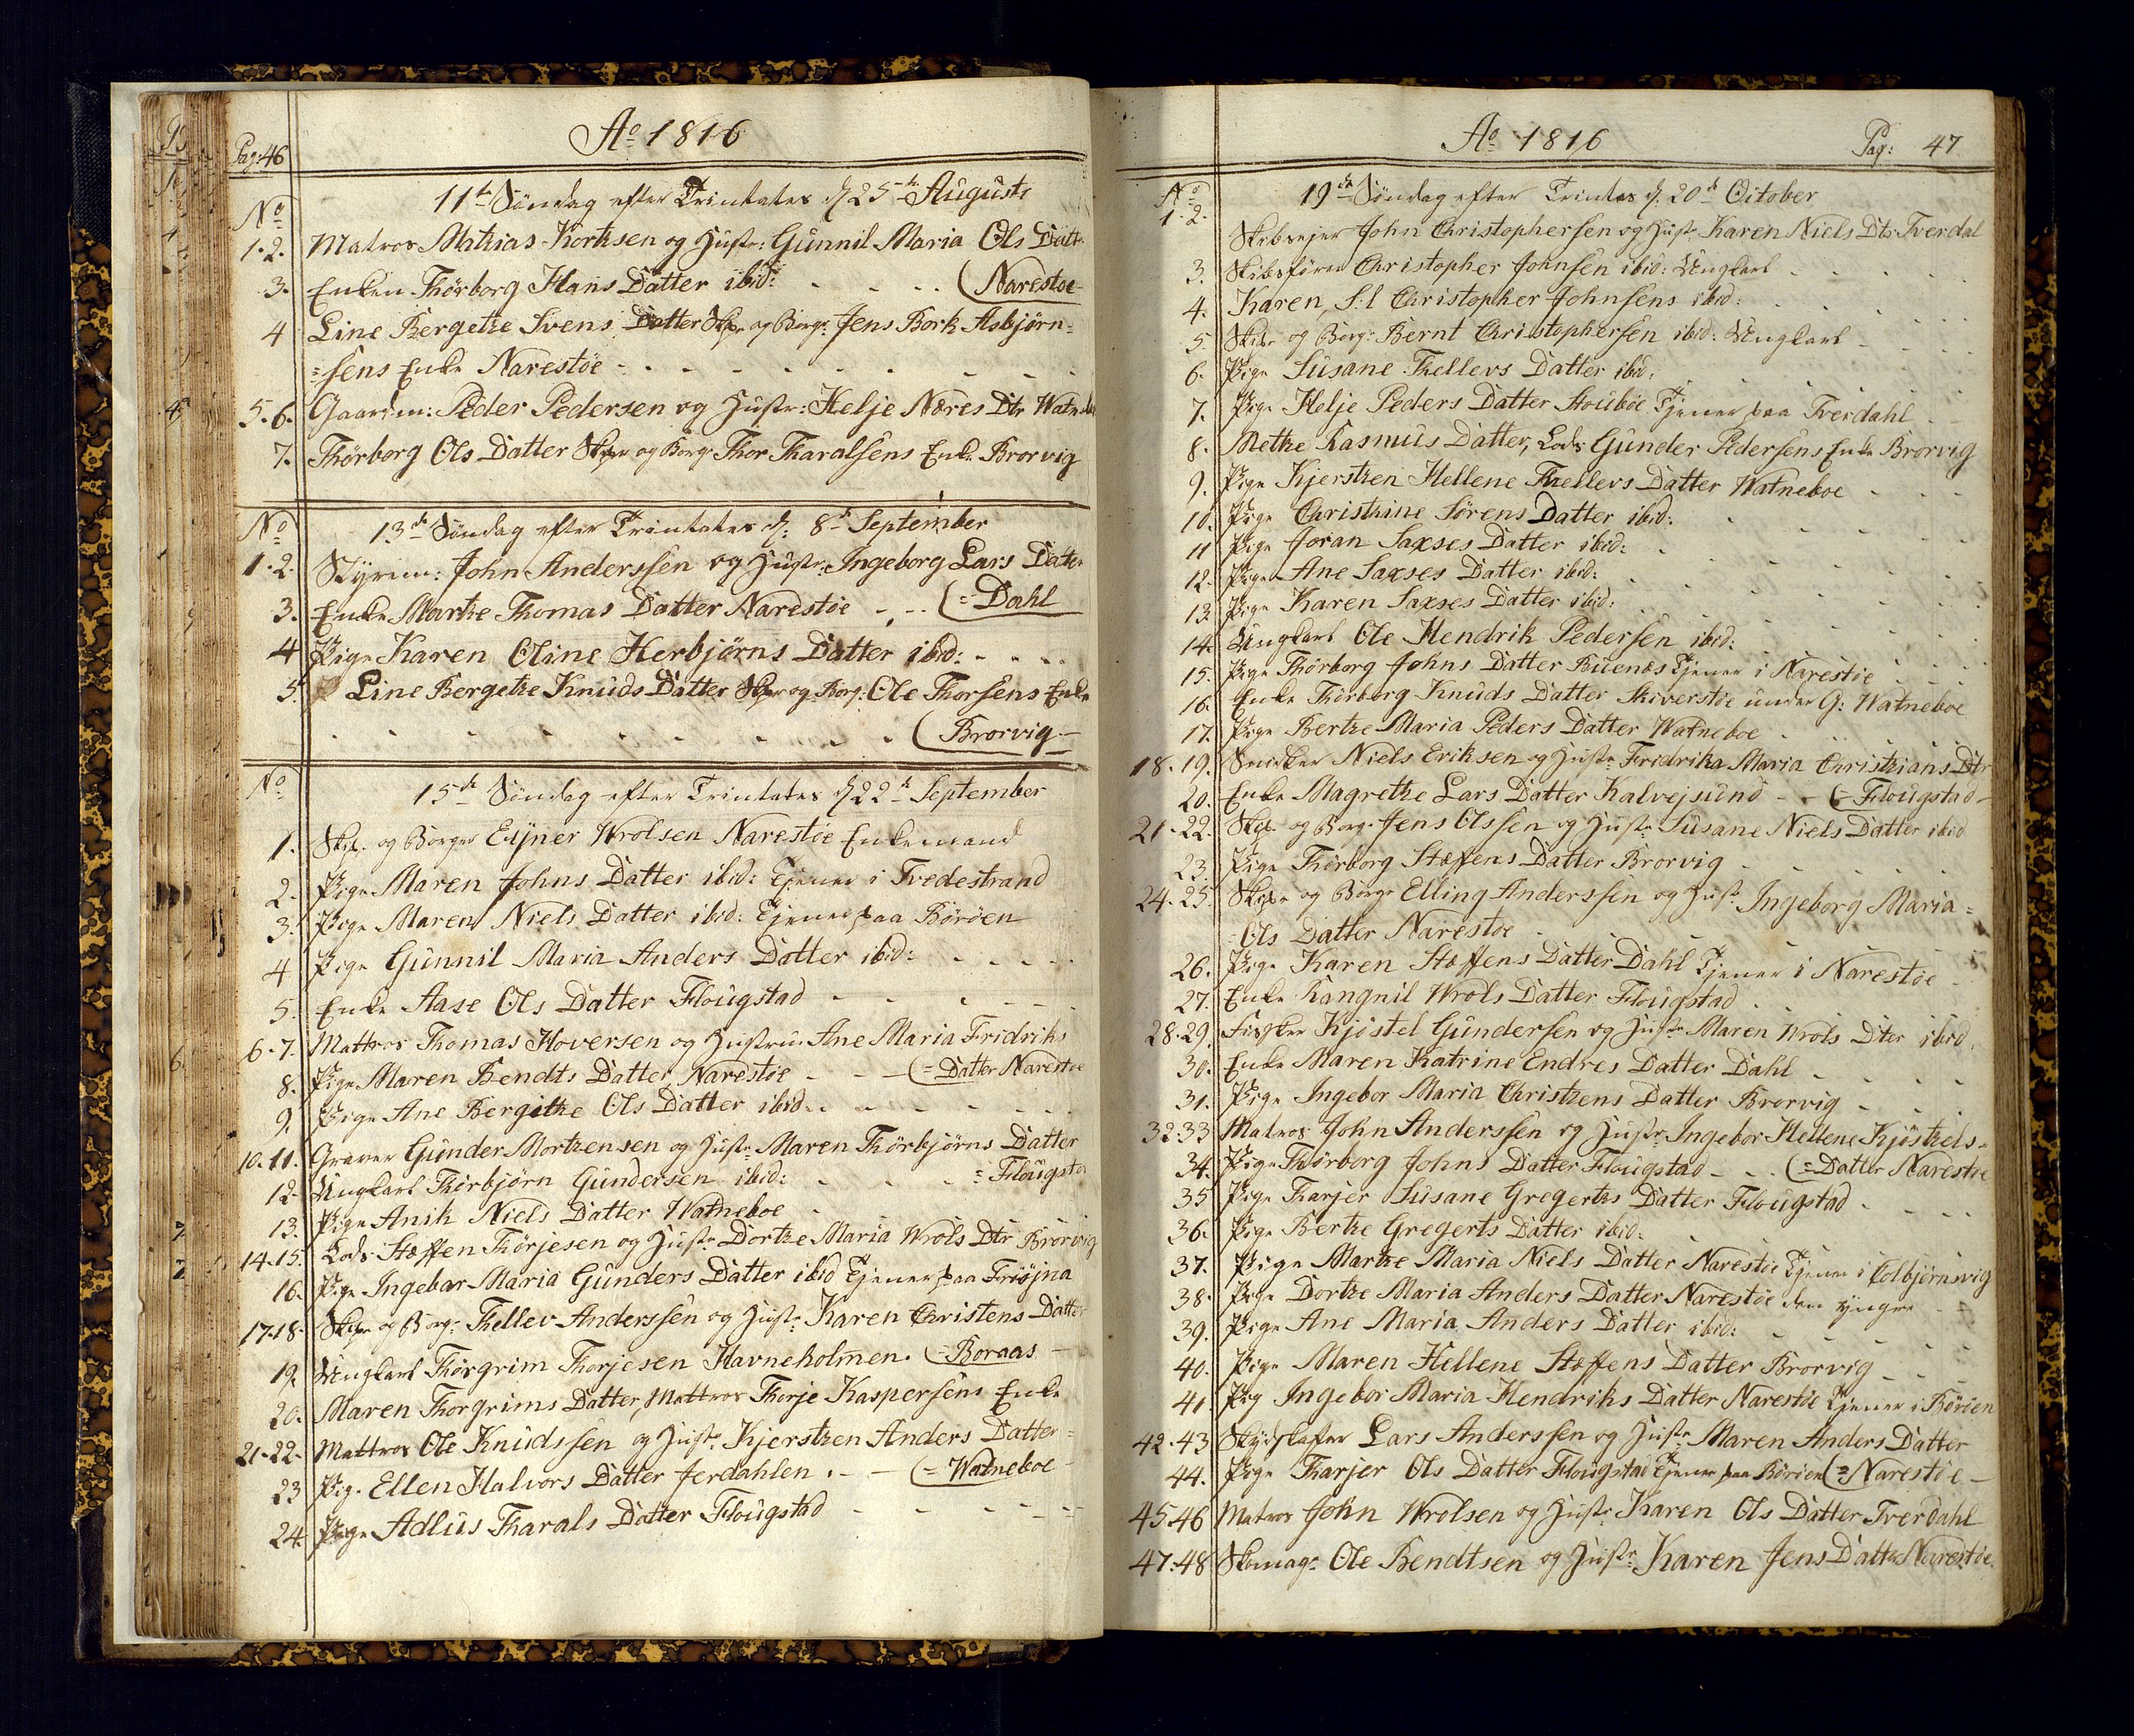 Pag: 46
Ao 1816
No 11te Søndag efter Trinitates d 25de Augusti
1.2. Matros Mathias Korthsen og Hustr: Gunnil Maria Ols Datt
3. Enken Thørborg Hans Datter ibid: (Narestøe
4 Line Bergethe Svens Datter Skipr og Borgr Jens Bork Asbjørn=
=sens Enke Narestøe
5.6. Gaardm: Peder Pedersen og Hustr: Helje Næres Dtr Watneboe
7. Thørborg Ols Datter Skipr og Borgr Thor Tharalsens Enke Brorvig
No 13de Søndag efter Trinitates d: 8de September
1.2. Styrm: John Anderssen og Hustr: Ingeborg Lars Datter
3. Enke Marthe Thomas Datter Narestøe (=Dahl
4 Pige Karen Oline Herbjørns Datter ibid:
5. Line Bergethe Knuds Datter Skipr og Borg: Ole Thorsens Enke
(Brorvig
No 15de Søndag efter Trinitates d 22de September
1. Skip. og Borger Eijner Wrolsen Narestøe Enkemand
2. Pige Maren Johns Datter ibid: Tjener i Tvedestrand
3. Pige Maren Niels Datter ibid: Tjener paa Børøen
4 Pige Gunnil Maria Anders Datter ibid:
5. Enke Aase Ols Datter Flougstad
6.7. Mattros Thomas Hoversen og Hustrue Ane Maria Fridriks
8. Pige Maren Bendts Datter Narestøe (=Datter Narestøe
9. Pige Ane Bergithe Ols Datter ibid:
10.11. Graver Gunder Mortzensen og Hustr: Maren Thörbjørns Datter
12. Ungkarl Thörbjørn Gundersen ibid: =Flougstad
13. Pige Anik Niels Datter Watneboe
14.15. Lods Stæffen Thörjesen og Hustr Dorthe Maria Wrols Dtr Brorvig
16. Pige Ingebor Maria Gunders Datter ibid Tjener paa Friøjna
17.18. Skipr og Borg: Thellev Anderssen og Hustr Karen Christens Datter
19. Ungkarl Thorgrim Thorjesen Havneholmen. (=Boraas
20. Maren Thorgrims Datter, Mattros Thorje Kaspersens Enke
21.22. Mattros Ole Knudssen og Hustr Kjersthen Anders Datter=
23 Pig. Ellen Halvors Datter Jerdahlen (=Watneboe
24. Pige Adlus Tharals Datter Flougstad
Ao 1816
Pag: 47
No 19de Søndag efter Trinitas d. 20de October
1.2. Skibsejer John Christophersen og Hustr Karen Niels Dtr Tverdal
3. Skibsfører Christopher Johnsen ibid: Ungkarl
4. Karen, S:l Christopher Johnsens ibid:
5. Skipr og Borgr Bernt Christophersen ibid: Ungkarl
6. Pige Susane Thellevs Datter ibid:
7. Pige Helje Peders Datter Stouboe Tjener paa Tverdahl
8. Methe Rasmus Datter, Lods Gunder Pedersens Enke Brorvig
9. Pige Kjersthen Hellene Thellevs Datter Watneboe
10. Pige Christhine Sørens Datter ibid:
11 Pige Joran Saxses Datter ibid:
12. Pige Ane Saxses Datter ibid:
13. Pige Karen Saxses Datter ibid:
14. Ungkarl Ole Hendrik Pedersen ibid:
15. Pige Thörborg Johns Datter Buenes Tjener i Narestøe
16. Enke Thörborg Knuds Datter Skiverstøe under G: Watneboe
17. Pige Berthe Maria Peders Datter Watneboe
18.19. Snedker Niels Eriksen og Hustr Fridrika Maria Christhians Dtr
20. Enke Magrethe Lars Datter Kalvejsund (=Flougstad
21.22. Skip. og Borg. Jens Olssen og Hustr Susane Niels Datter ibid
23. Pige Thörborg Stæffens Datter Brorvig
24.25. Skipr og Borgr Elling Anderssen og Hustr Ingeborg Maria=
=Ols Datter Narestøe
26. Pige Karen Stæffens Datter Dahl Tjener i Narestøe
27. Enke Rangnil Wrols Datter Flougstad
28.29. Fisker Kjøstel Gundersen og Hustr Maren Wrols Dter ibid.
30. Enke Maren Katrine Endres Datter Dahl
31. Pige Ingebor Maria Christhens Datter Brorvig
32.33 Matros John Anderssen og Hustr Ingebor Hellene Kjøsthels=
34. Pige Thörborg Johns Datter Flougstad (=Datter Narestøe
35 Pige Tharjer Susane Gregerths Datter Flougstad
36. Pige Berthe Gregerts Datter ibid:
37. Pige Marthe Maria Niels Datter Narestøe Tjener i Colbjørnsvig
38. Pige Dorthe Maria Anders Datter Narestøe den yngre
39. Pige Ane Maria Anders Datter ibid:
40. Pige Maren Hellene Stæffens Datter Brorvig
41 Pig Ingebor Maria Hendriks Datter Narestøe Tjener i Børøen
42.43 Skydskafer Lars Anderssen og Hustr Maren Anders Datter
44. Pige Tharjer Ols Datter Flougstad Tjener paa Børøen (=Narestøe
45.46 Matros John Wrolsen og Hustr Karen Ols Datter Tverdahl
47.48 Skomagr Ole Bendtsen og Hustr: Karen Jens Datter Narestøe